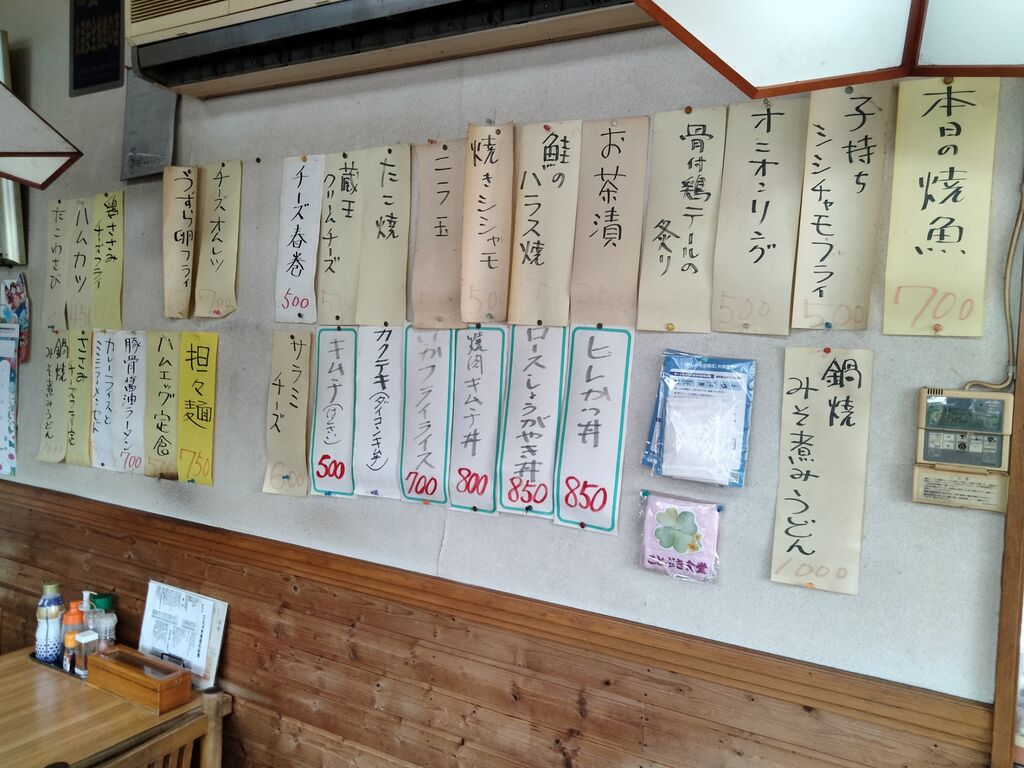 本日の焼魚
700
子持ち
シシチャモフライ
500
オニオンリング
500
骨付鶏テールの
炙り
お茶漬
鮭の
ハラス焼
焼きシシャモ
500
ニラ玉
たこ焼
蔵王
クリームチーズ
チーズ春巻
500
チーズオムレツ
700
うずら卵フライ
鶏ささみ
チーズフライ
ハムカツ
たこわさび
鍋焼
みそ煮みうどん
1000
ヒレかつ丼
850
ロースしょうがやき丼
850
焼肉キムチ丼
800
いかフライライス
700
カクテキ(ダイコンキムチ)
キムチ(はくさい)
500
サラミ
チーズ
600
担々麺
750
ハムエッグ定食
豚骨醤油ラーメン
700
カレーライスと
鍋焼
みそ煮みうどん
ことぶき食堂